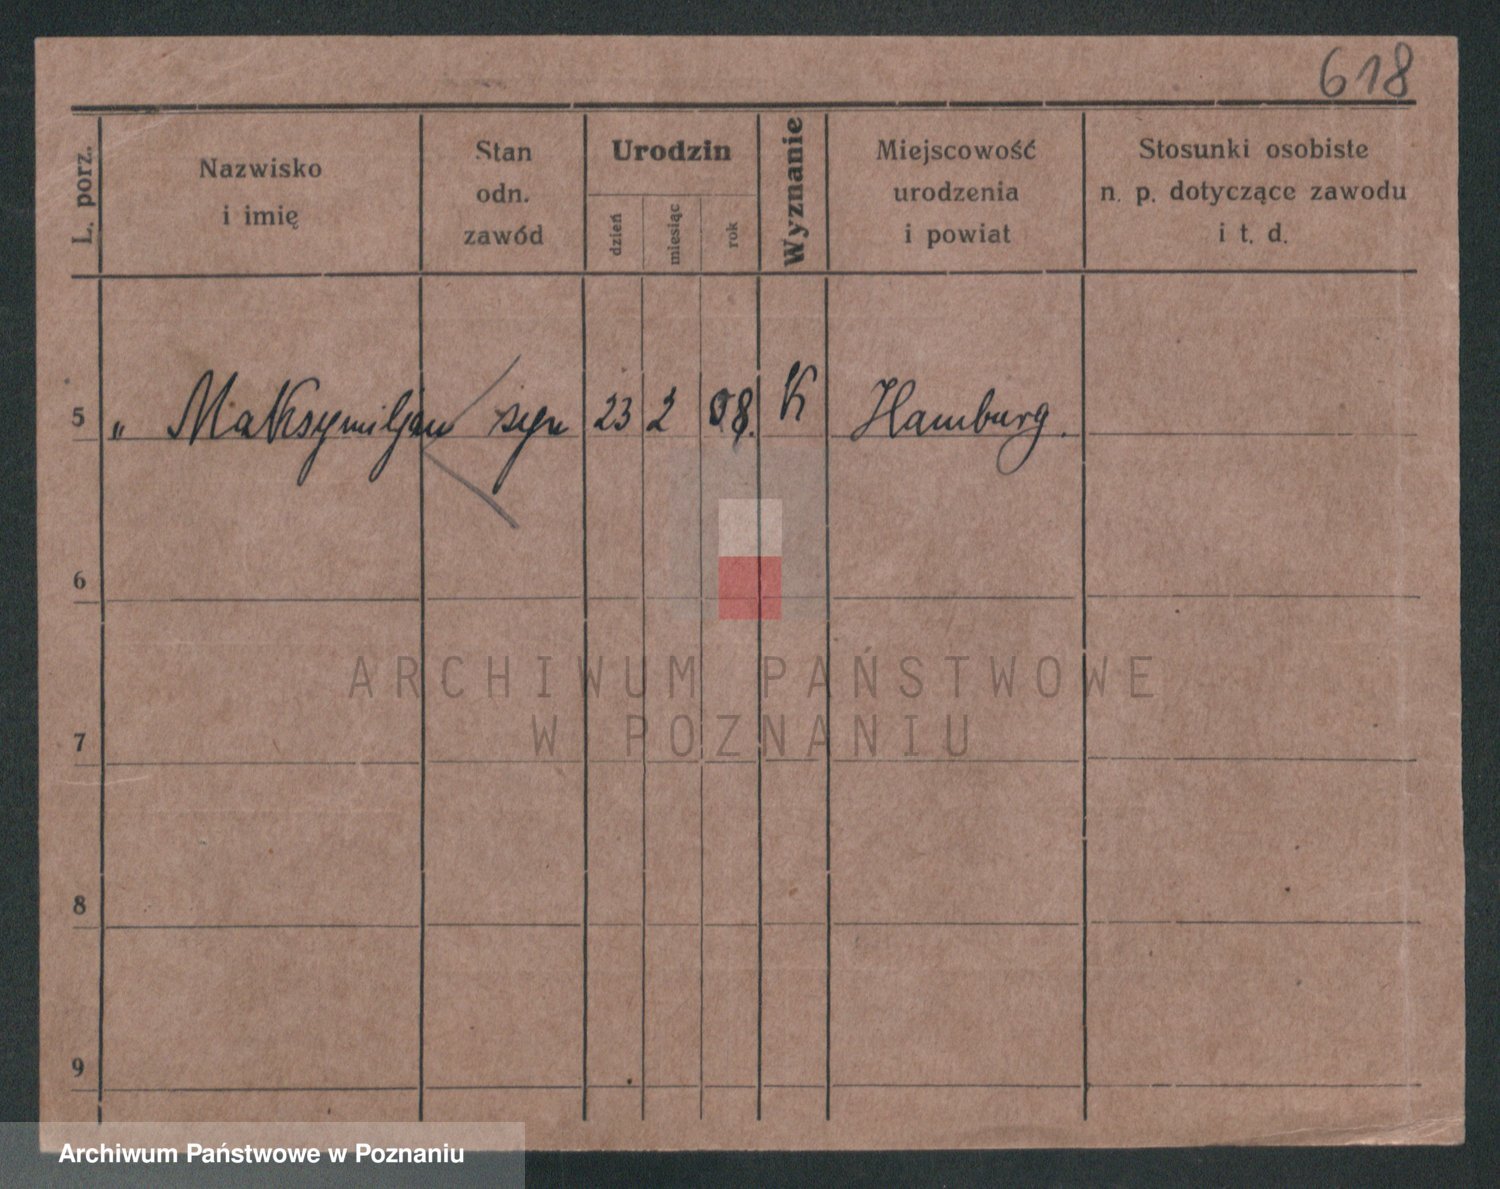 618
L. porz.
Nazwisko
i imię
Stan
odn.
zawód
Urodzin
dzień
miesiąc
rok
Wyznanie
Miejscowość
urodzenia
i powiat
Stosunki osobiste
n. p. dotyczące zawodu
i t. d.
5 " Maksymiljan syn 23 2 08. K Hamburg.
6
ARCHIWUM PAŃSTWOWE
W POZNANIU
7
8
9
Archiwum Państwowe w Poznaniu